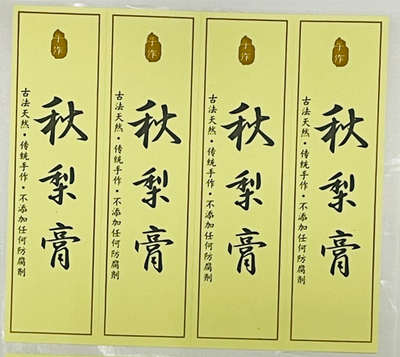 手作
秋梨膏
古法天然·传统手作·不添加任何防腐剂
手作
秋梨膏
古法天然·传统手作·不添加任何防腐剂
手作
秋梨膏
古法天然·传统手作·不添加任何防腐剂
手作
秋梨膏
古法天然·传统手作·不添加任何防腐剂